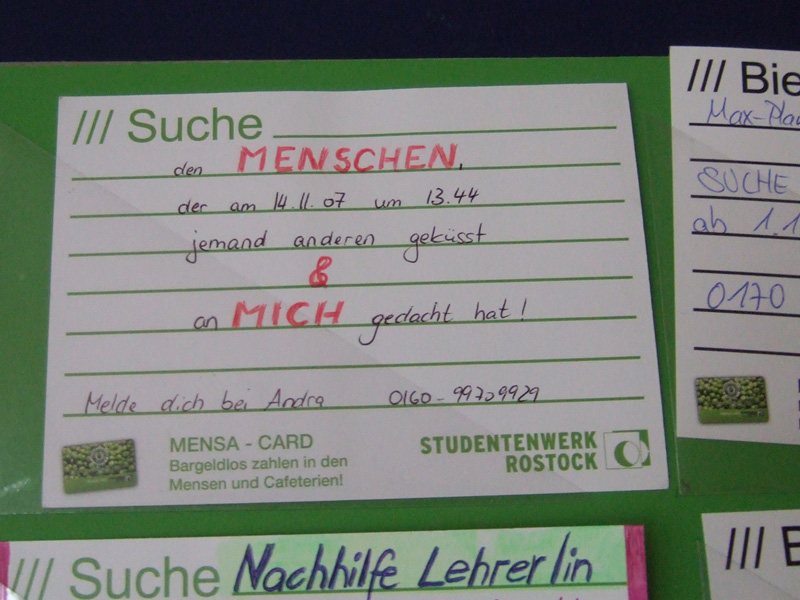 /// Suche
den MENSCHEN,
der am 14.11.07 um 13.44
jemand anderen geküsst
&
an MICH gedacht hat!
Melde dich bei Andra 0160-99709929
MENSA - CARD
Bargeldlos zahlen in den
Mensen und Cafeterien!
STUDENTENWERK
ROSTOCK
/// Bie
Max-Pla
SUCHE
ab 1.1
0170
/// Suche Nachhilfe Lehrer/in
///